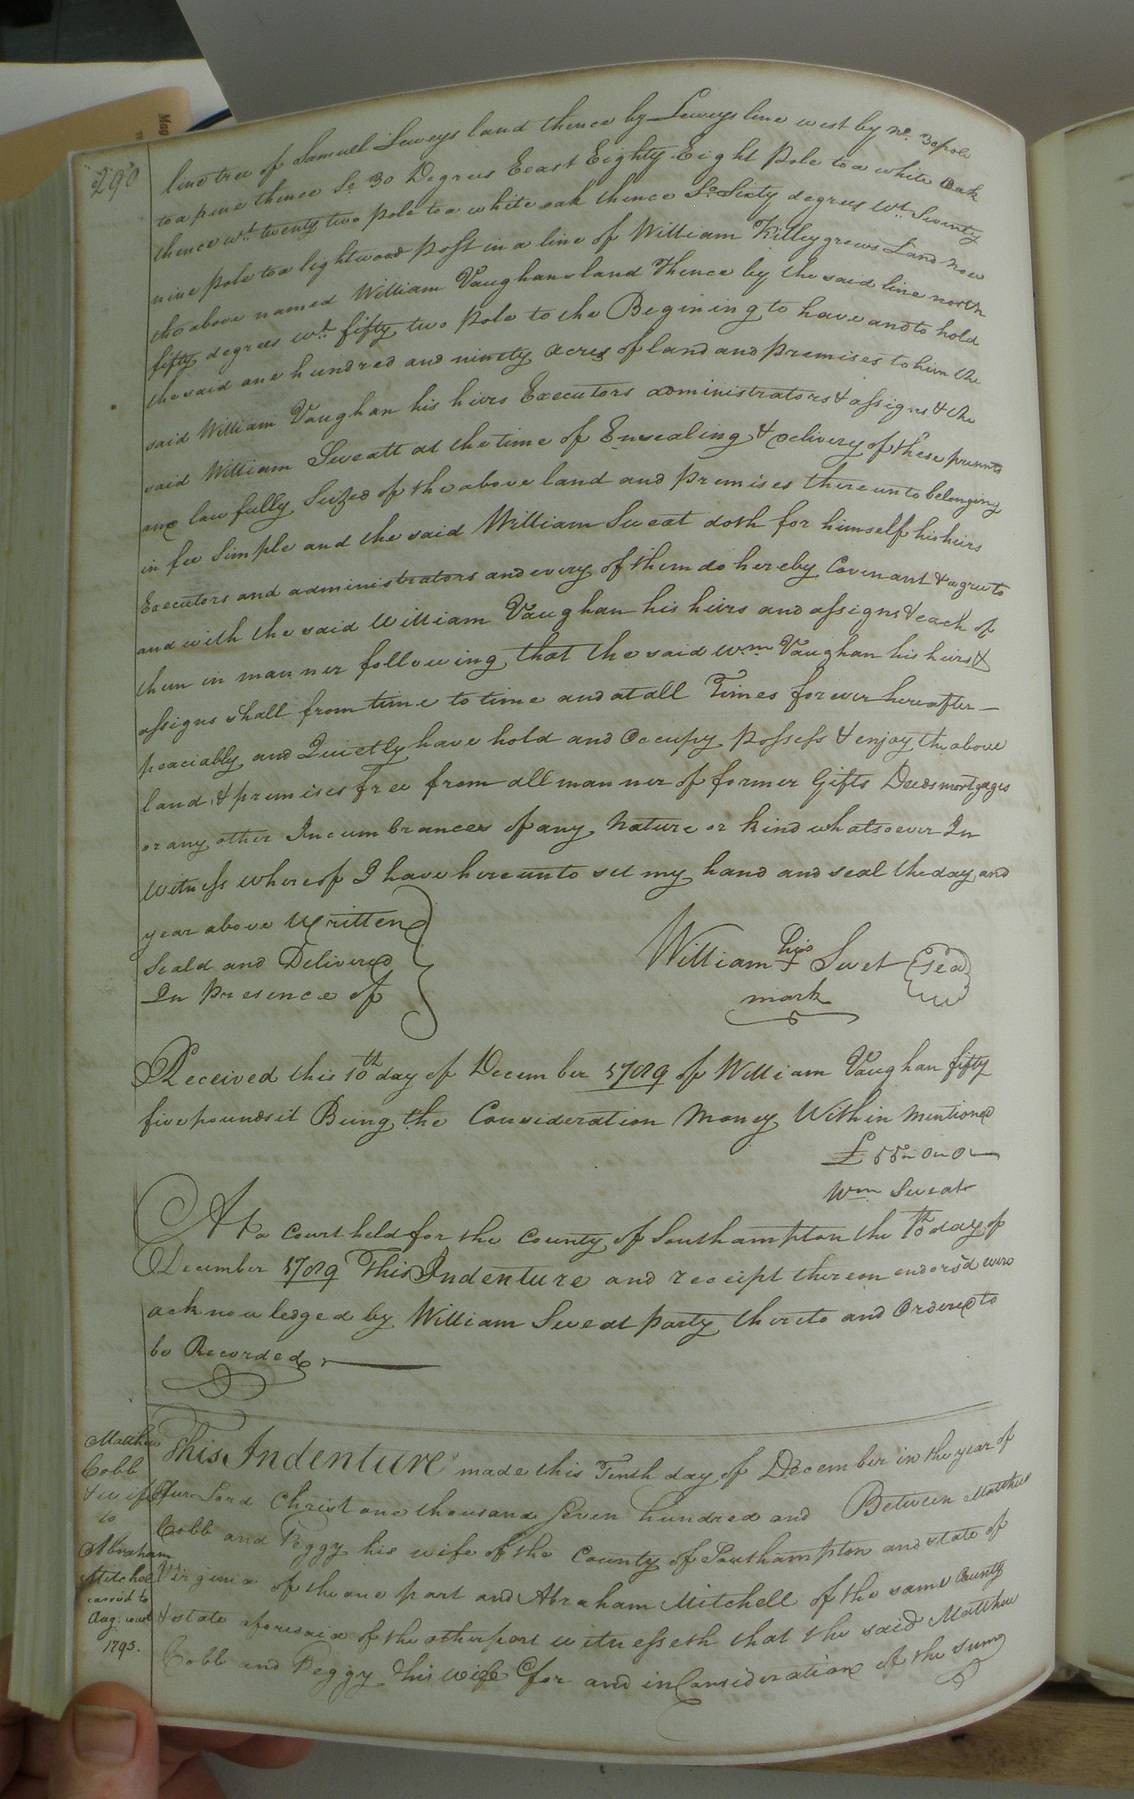 290
line tree of Samuel Seweys land thence by Seweys line west by No. 30 pole
to a pine thence So 30 Degrees Eeast Eighty Eight pole to a white Oak
thence Wt. twenty two pole to a white oak thence So Sixty degrees Wt. Seventy
nine pole to a lightwood post in a line of William Killeygrews Land now
the above named William Vaughans land Thence by the said line north
fifty degrees Wt. fifty two pole to the Begining to have and to hold
the said one hundred and ninety acres of land and premises to him the
said William Vaughan his hiers Executors administrators & assigns & the
said William Sweatt at the time of Ensealing & delivery of these presents
are lawfully Seized of the above land and premises thereunto belonging
in fee Simple and the said William Sweat doth for himself his heirs
Executors and administrators and every of them do hereby Covenant & agree to
and with the said William Vaughan his heirs and assigns & each of
them in manner following that the said Wm Vaughan his heirs &
assigns shall from time to time and at all Times forever hereafter —
peaciably and Quietly have hold and Occupy possess & enjoy the above
land & premises free from all manner of former Gifts Deeds mortgages
or any other Incumbrances of any Nature or kind whatsoever In
Witness whereof I have hereunto set my hand and seal the day and
year above Written
Seald and Delivered
In Presence of
William his x Swet seal
mark
Received this 10th day of December 1789 of William Vaughan fifty
five pounds it Being the Consideration Money Within mentioned
£ 55 " 0 " 0
Wm Sweat
At a Court held for the County of Southampton the 10th day of
December 1789 This Indenture and receipt thereon endorsd were
acknowledged by William Sweat party thereto and Ordered to
be Recorded
Matthew
Cobb
& wife
to
Abraham
Mitchel
Aug. court
1793.
This Indenture made this Tenth day of December in the year of
Our Lord Christ one thousand Seven hundred and Between Matthew
Cobb and Peggy his wife of the County of Southampton and state of
Virginia of the one part and Abraham Mitchell of the same County
& state aforesaid of the other part witnesseth that the said Matthew
Cobb and Peggy his wife for and in Consideration of the sum